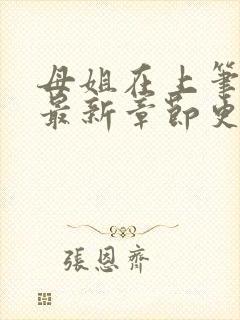 母姐在上筆
最新章節史
張恩齊